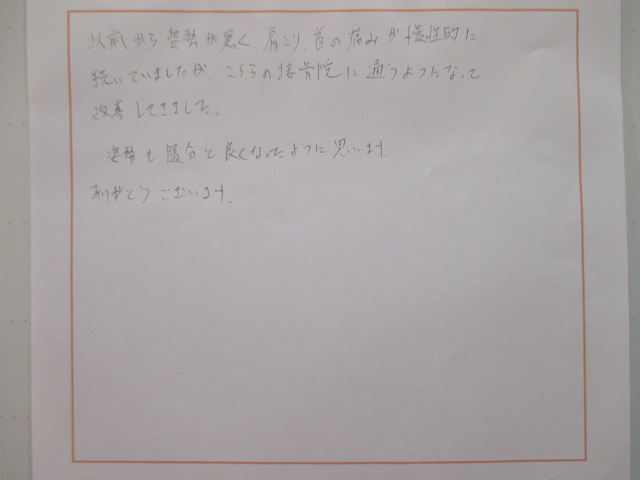 以前から姿勢が悪く、肩こり、首の痛みが慢性的に
続いていましたが、こちらの接骨院に通うようになって
改善してきました。
姿勢も随分と良くなったように思います。
ありがとうございます。